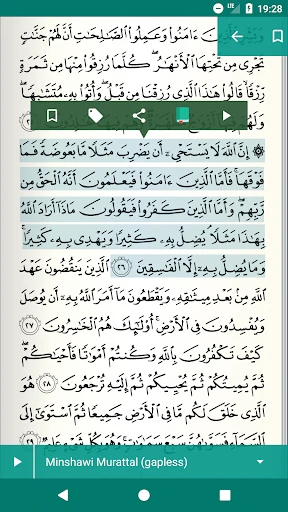 19:28
وَبَشِّرِ ٱلَّذِينَ ءَامَنُوا۟ وَعَمِلُوا۟ ٱلصَّـٰلِحَـٰتِ أَنَّ لَهُمْ جَنَّـٰتٍ
تَجْرِى مِن تَحْتِهَا ٱلْأَنْهَـٰرُ ۖ كُلَّمَا رُزِقُوا۟ مِنْهَا مِن ثَمَرَةٍ
رِّزْقًا ۙ قَالُوا۟ هَـٰذَا ٱلَّذِى رُزِقْنَا مِن قَبْلُ ۖ وَأُتُوا۟ بِهِۦ مُتَشَـٰبِهًا ۖ
وَلَهُمْ
۞ إِنَّ ٱللَّهَ لَا يَسْتَحْىِۦٓ أَن يَضْرِبَ مَثَلًا مَّا بَعُوضَةً فَمَا
فَوْقَهَا ۚ فَأَمَّا ٱلَّذِينَ ءَامَنُوا۟ فَيَعْلَمُونَ أَنَّهُ ٱلْحَقُّ مِن
رَّبِّهِمْ ۖ وَأَمَّا ٱلَّذِينَ كَفَرُوا۟ فَيَقُولُونَ مَاذَآ أَرَادَ ٱللَّهُ
بِهَـٰذَا مَثَلًا ۘ يُضِلُّ بِهِۦ كَثِيرًا وَيَهْدِى بِهِۦ كَثِيرًا ۚ
وَمَا يُضِلُّ بِهِۦٓ إِلَّا ٱلْفَـٰسِقِينَ ٢٦ ٱلَّذِينَ يَنقُضُونَ عَهْدَ
ٱللَّهِ مِنۢ بَعْدِ مِيثَـٰقِهِۦ وَيَقْطَعُونَ مَآ أَمَرَ ٱللَّهُ بِهِۦٓ أَن يُوصَلَ
وَيُفْسِدُونَ فِى ٱلْأَرْضِ ۚ أُو۟لَـٰٓئِكَ هُمُ ٱلْخَـٰسِرُونَ ٢٧
كَيْفَ تَكْفُرُونَ بِٱللَّهِ وَكُنتُمْ أَمْوَٰتًا فَأَحْيَـٰكُمْ ۖ
ثُمَّ يُمِيتُكُمْ ثُمَّ يُحْيِيكُمْ ثُمَّ إِلَيْهِ تُرْجَعُونَ ٢٨ هُوَ
ٱلَّذِى خَلَقَ لَكُم مَّا فِى ٱلْأَرْضِ جَمِيعًا ثُمَّ ٱسْتَوَىٰٓ إِلَى
Minshawi Murattal (gapless)